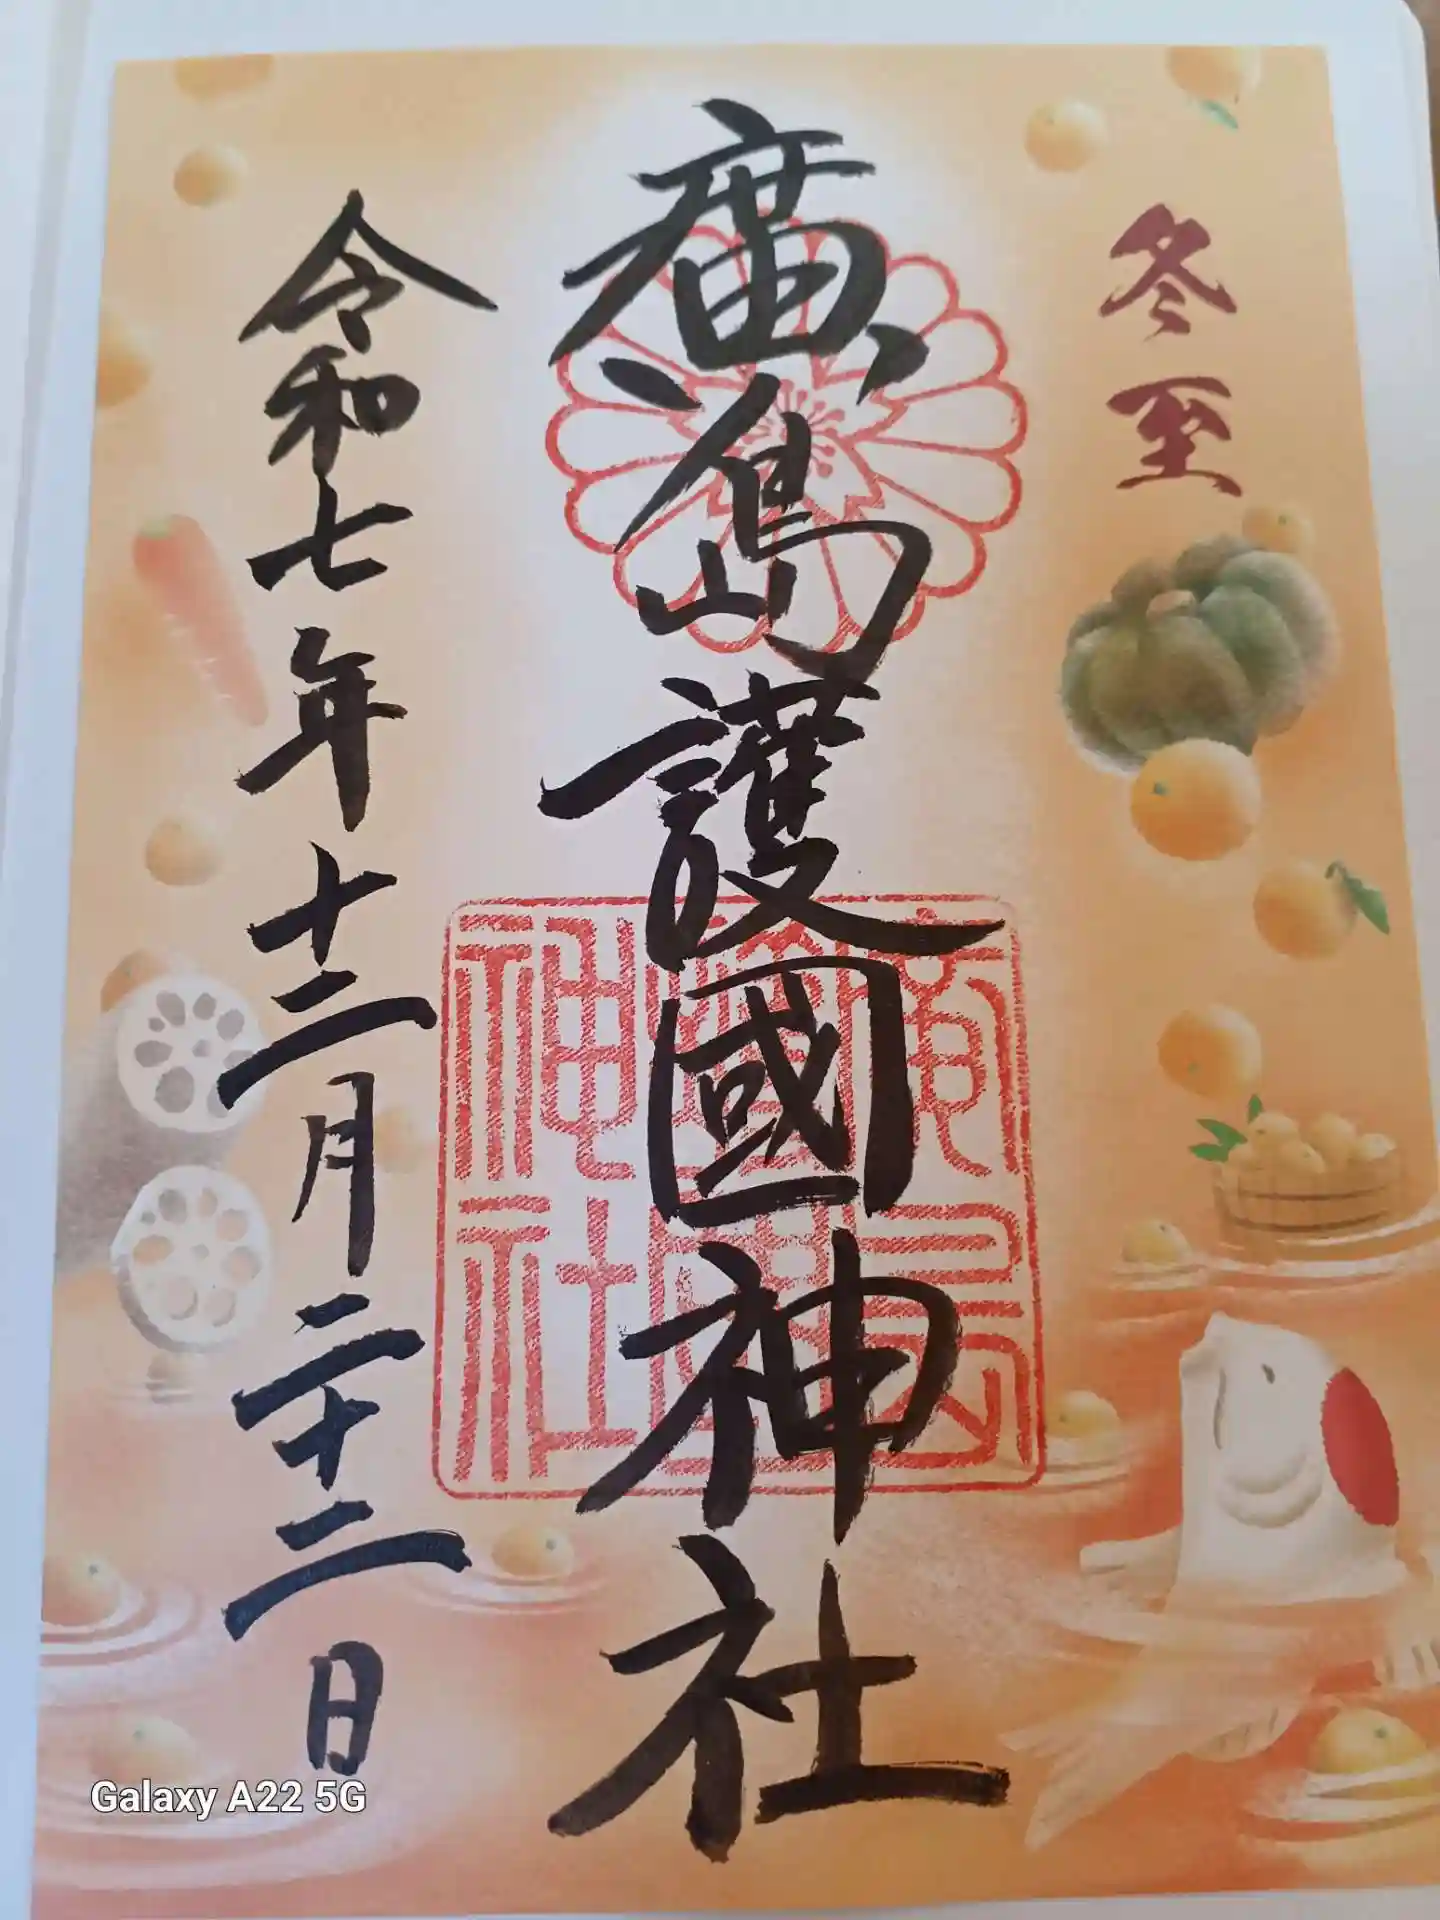 冬至
廣島護國神社
令和七年十二月二十二日
廣島
護國
神社
Galaxy A22 5G